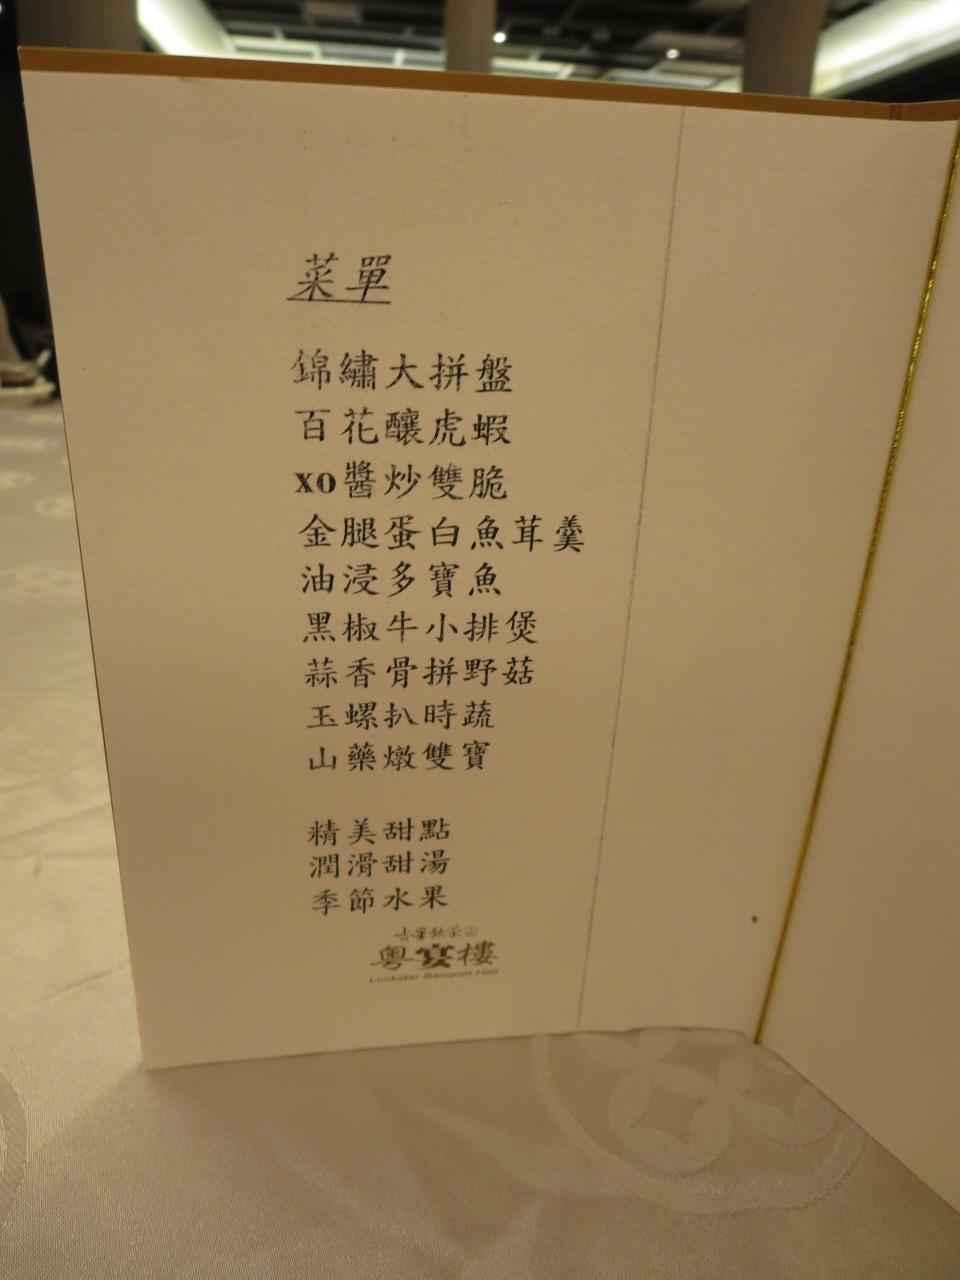 菜單
錦繡大拼盤
百花釀虎蝦
xo醬炒雙脆
金腿蛋白魚茸羹
油浸多寶魚
黑椒牛小排煲
蒜香骨拼野菇
玉螺扒時蔬
山藥燉雙寶
精美甜點
潤滑甜湯
季節水果
粵宴樓
Luckstar Banquet Hall